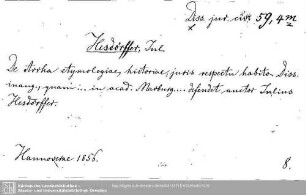 Diss. jur. civ. 59, 4 m
Hesdörffer, Jul.
De Arrha etymologiae, historiae, juris respectu habito. Diss.
inaug., quam ... in acad. Marburg. ... defendet auctor Julius
Hesdörffer.
Hannoverae 1856. 8.
Sächsische Landesbibliothek -
Staats- und Universitätsbibliothek Dresden